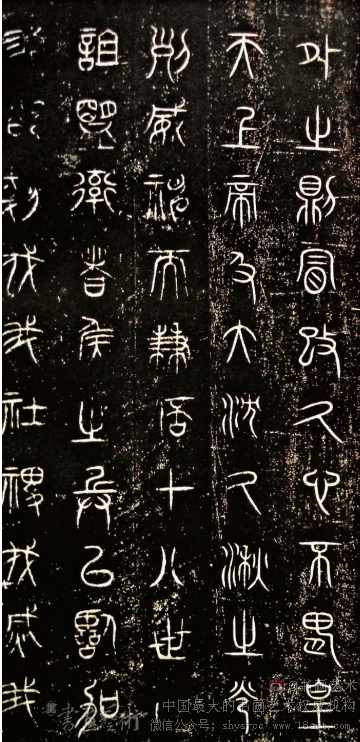 外之則冒改久心不畏皇
天上帝及大沈久湫之光
列威神而兼倍十八世之
詛盟衛者侯之兵以臨加
我欲剗伐我社稷伐威我
中国最大的书画艺术权威机构
微信公众号：shysrcc